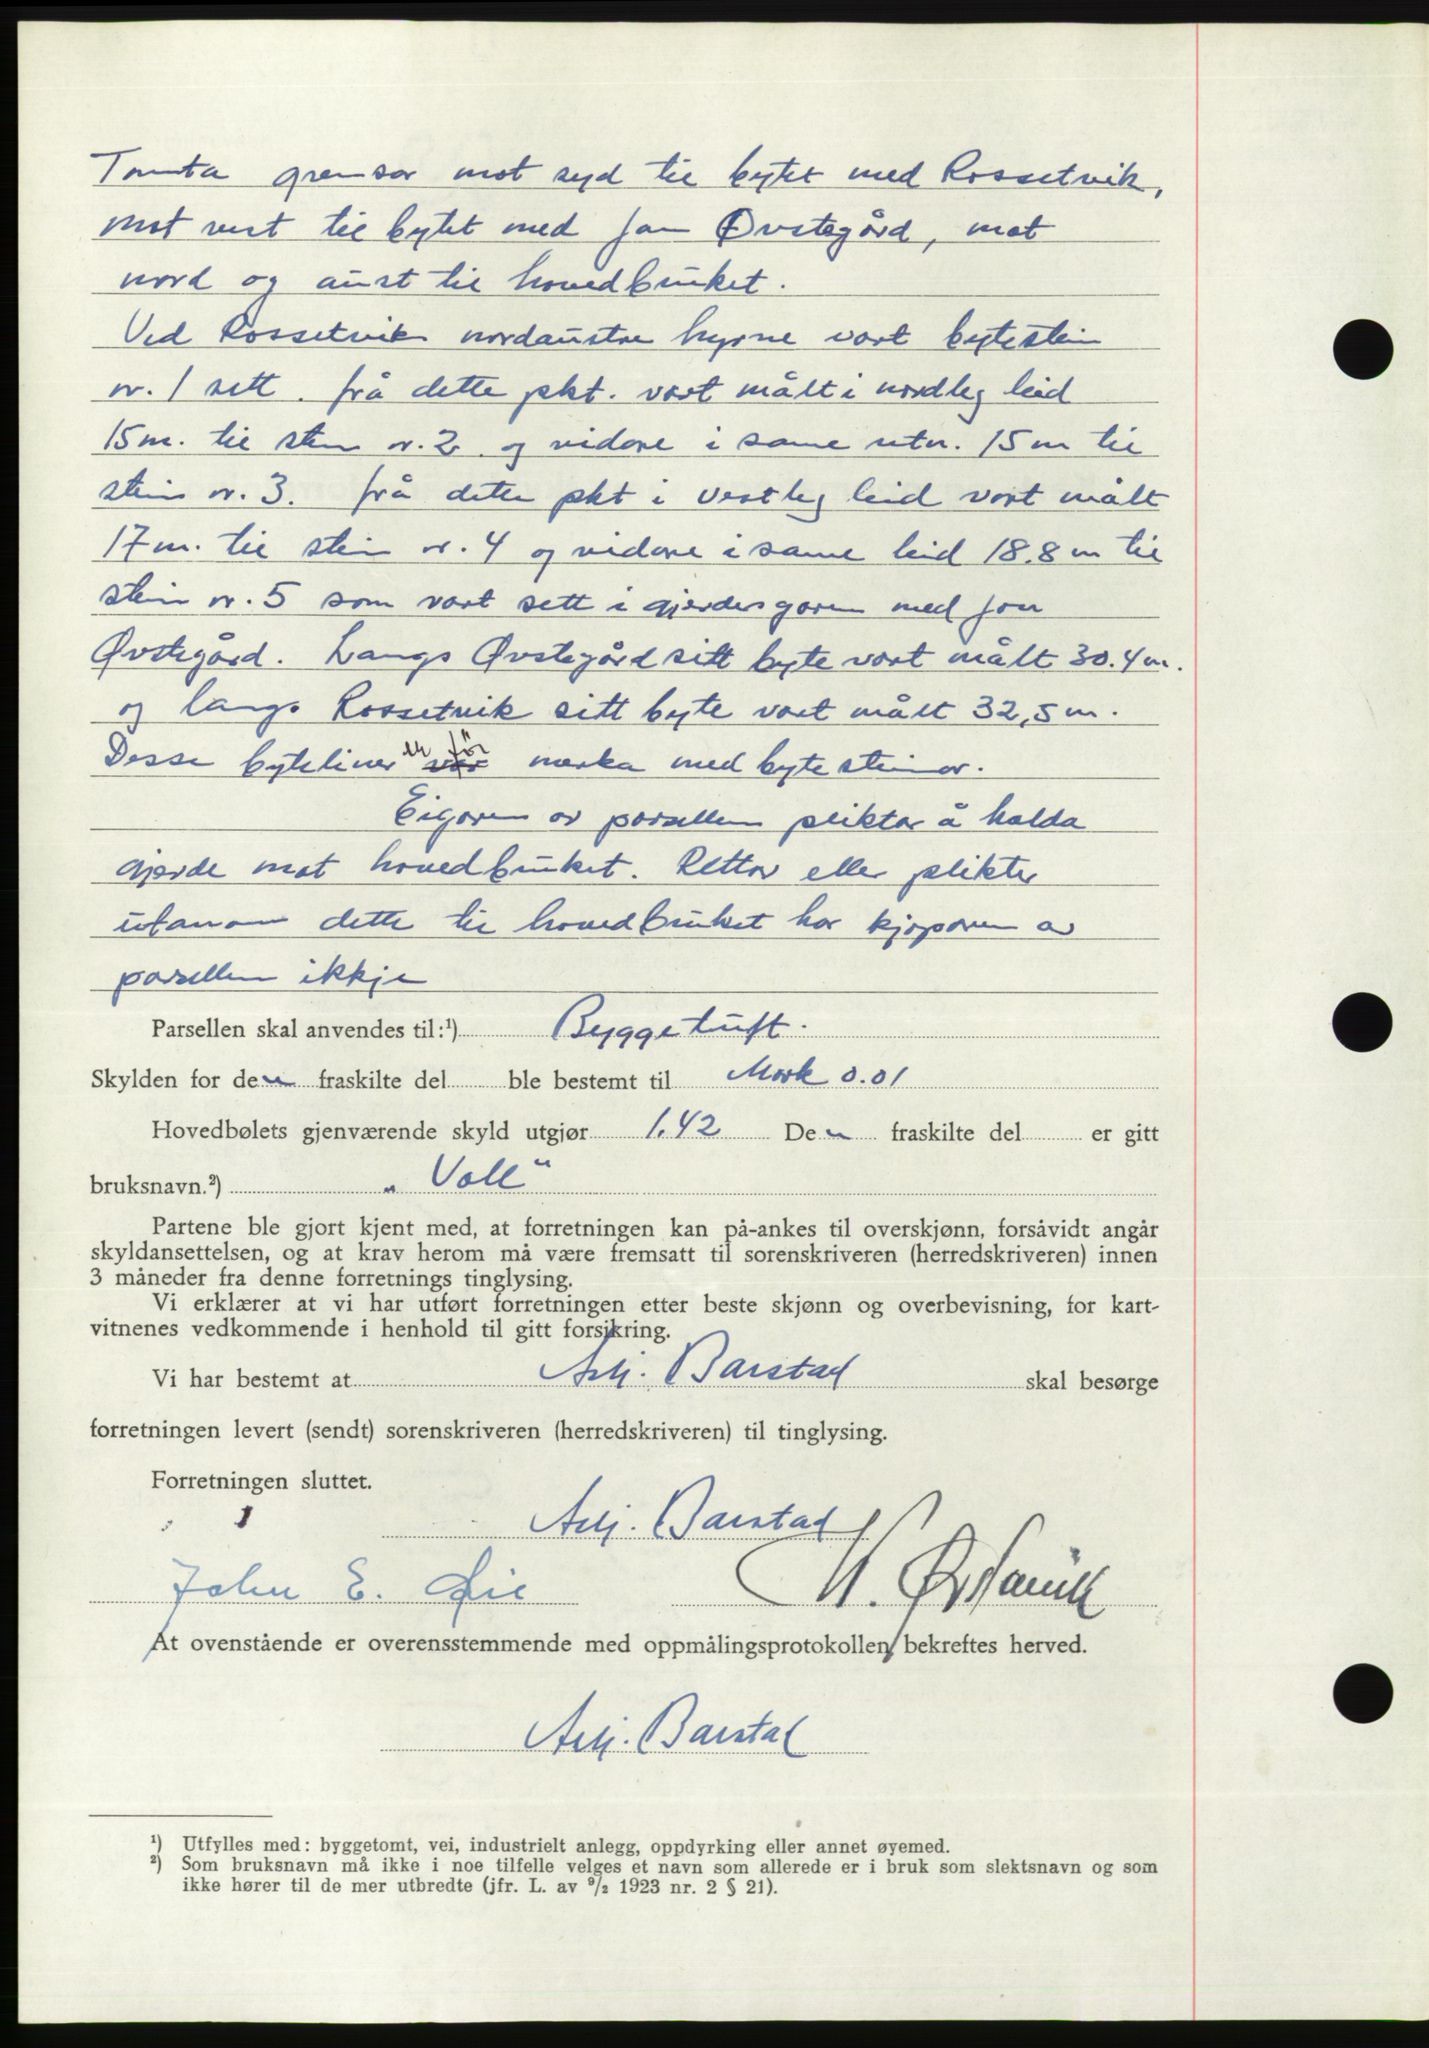 Tomta grensar mot syd til bytet med Rossetvik,
mot vest til bytet med Jon Øvstegård, mot
nord og aust til hovedbruket.
Ved Rossetvik nordaustre hyrne vart bytestein
nr. 1 sett. frå dette pkt. vart målt i nordleg leid
15 m. til stein nr. 2 og vidare i same retn. 15 m til
stein nr. 3. frå dette pkt i vestleg leid vart målt
17 m. til stein nr. 4 og vidare i same leid 18.8 m til
stein nr. 5 som vart sett i gjerdesgaren med Jon
Øvstegård. Langs Øvstegård sitt byte vart målt 30.4 m.
og langs Rossetvik sitt byte vart målt 32,5 m.
Desse byteliner er før merka med bytesteinar.
Eigaren av parsellen pliktar å halda
gjerde mot hovedbruket. Rettar eller plikter
utanom dette til hovedbruket har kjøparen av
parsellen ikkje
Parsellen skal anvendes til:¹) Byggetuft.
Skylden for den fraskilte del ble bestemt til Mark 0.01
Hovedbølets gjenværende skyld utgjør 1.42 Den fraskilte del er gitt
bruksnavn.²) „Voll“
Partene ble gjort kjent med, at forretningen kan på-ankes til overskjønn, forsåvidt angår
skyldansettelsen, og at krav herom må være fremsatt til sorenskriveren (herredskriveren) innen
3 måneder fra denne forretnings tinglysing.
Vi erklærer at vi har utført forretningen etter beste skjønn og overbevisning, for kart-
vitnenes vedkommende i henhold til gitt forsikring.
Vi har bestemt at Asbj. Barstad skal besørge
forretningen levert (sendt) sorenskriveren (herredskriveren) til tinglysing.
Forretningen sluttet.
Asbj. Barstad
John E. Øie K. Ørstavik
At ovenstående er overensstemmende med oppmålingsprotokollen bekreftes herved.
Asbj. Barstad
¹) Utfylles med: byggetomt, vei, industrielt anlegg, oppdyrking eller annet øyemed.
²) Som bruksnavn må ikke i noe tilfelle velges et navn som allerede er i bruk som slektsnavn og som
ikke hører til de mer utbredte (jfr. L. av ⁹/₂ 1923 nr. 2 § 21).